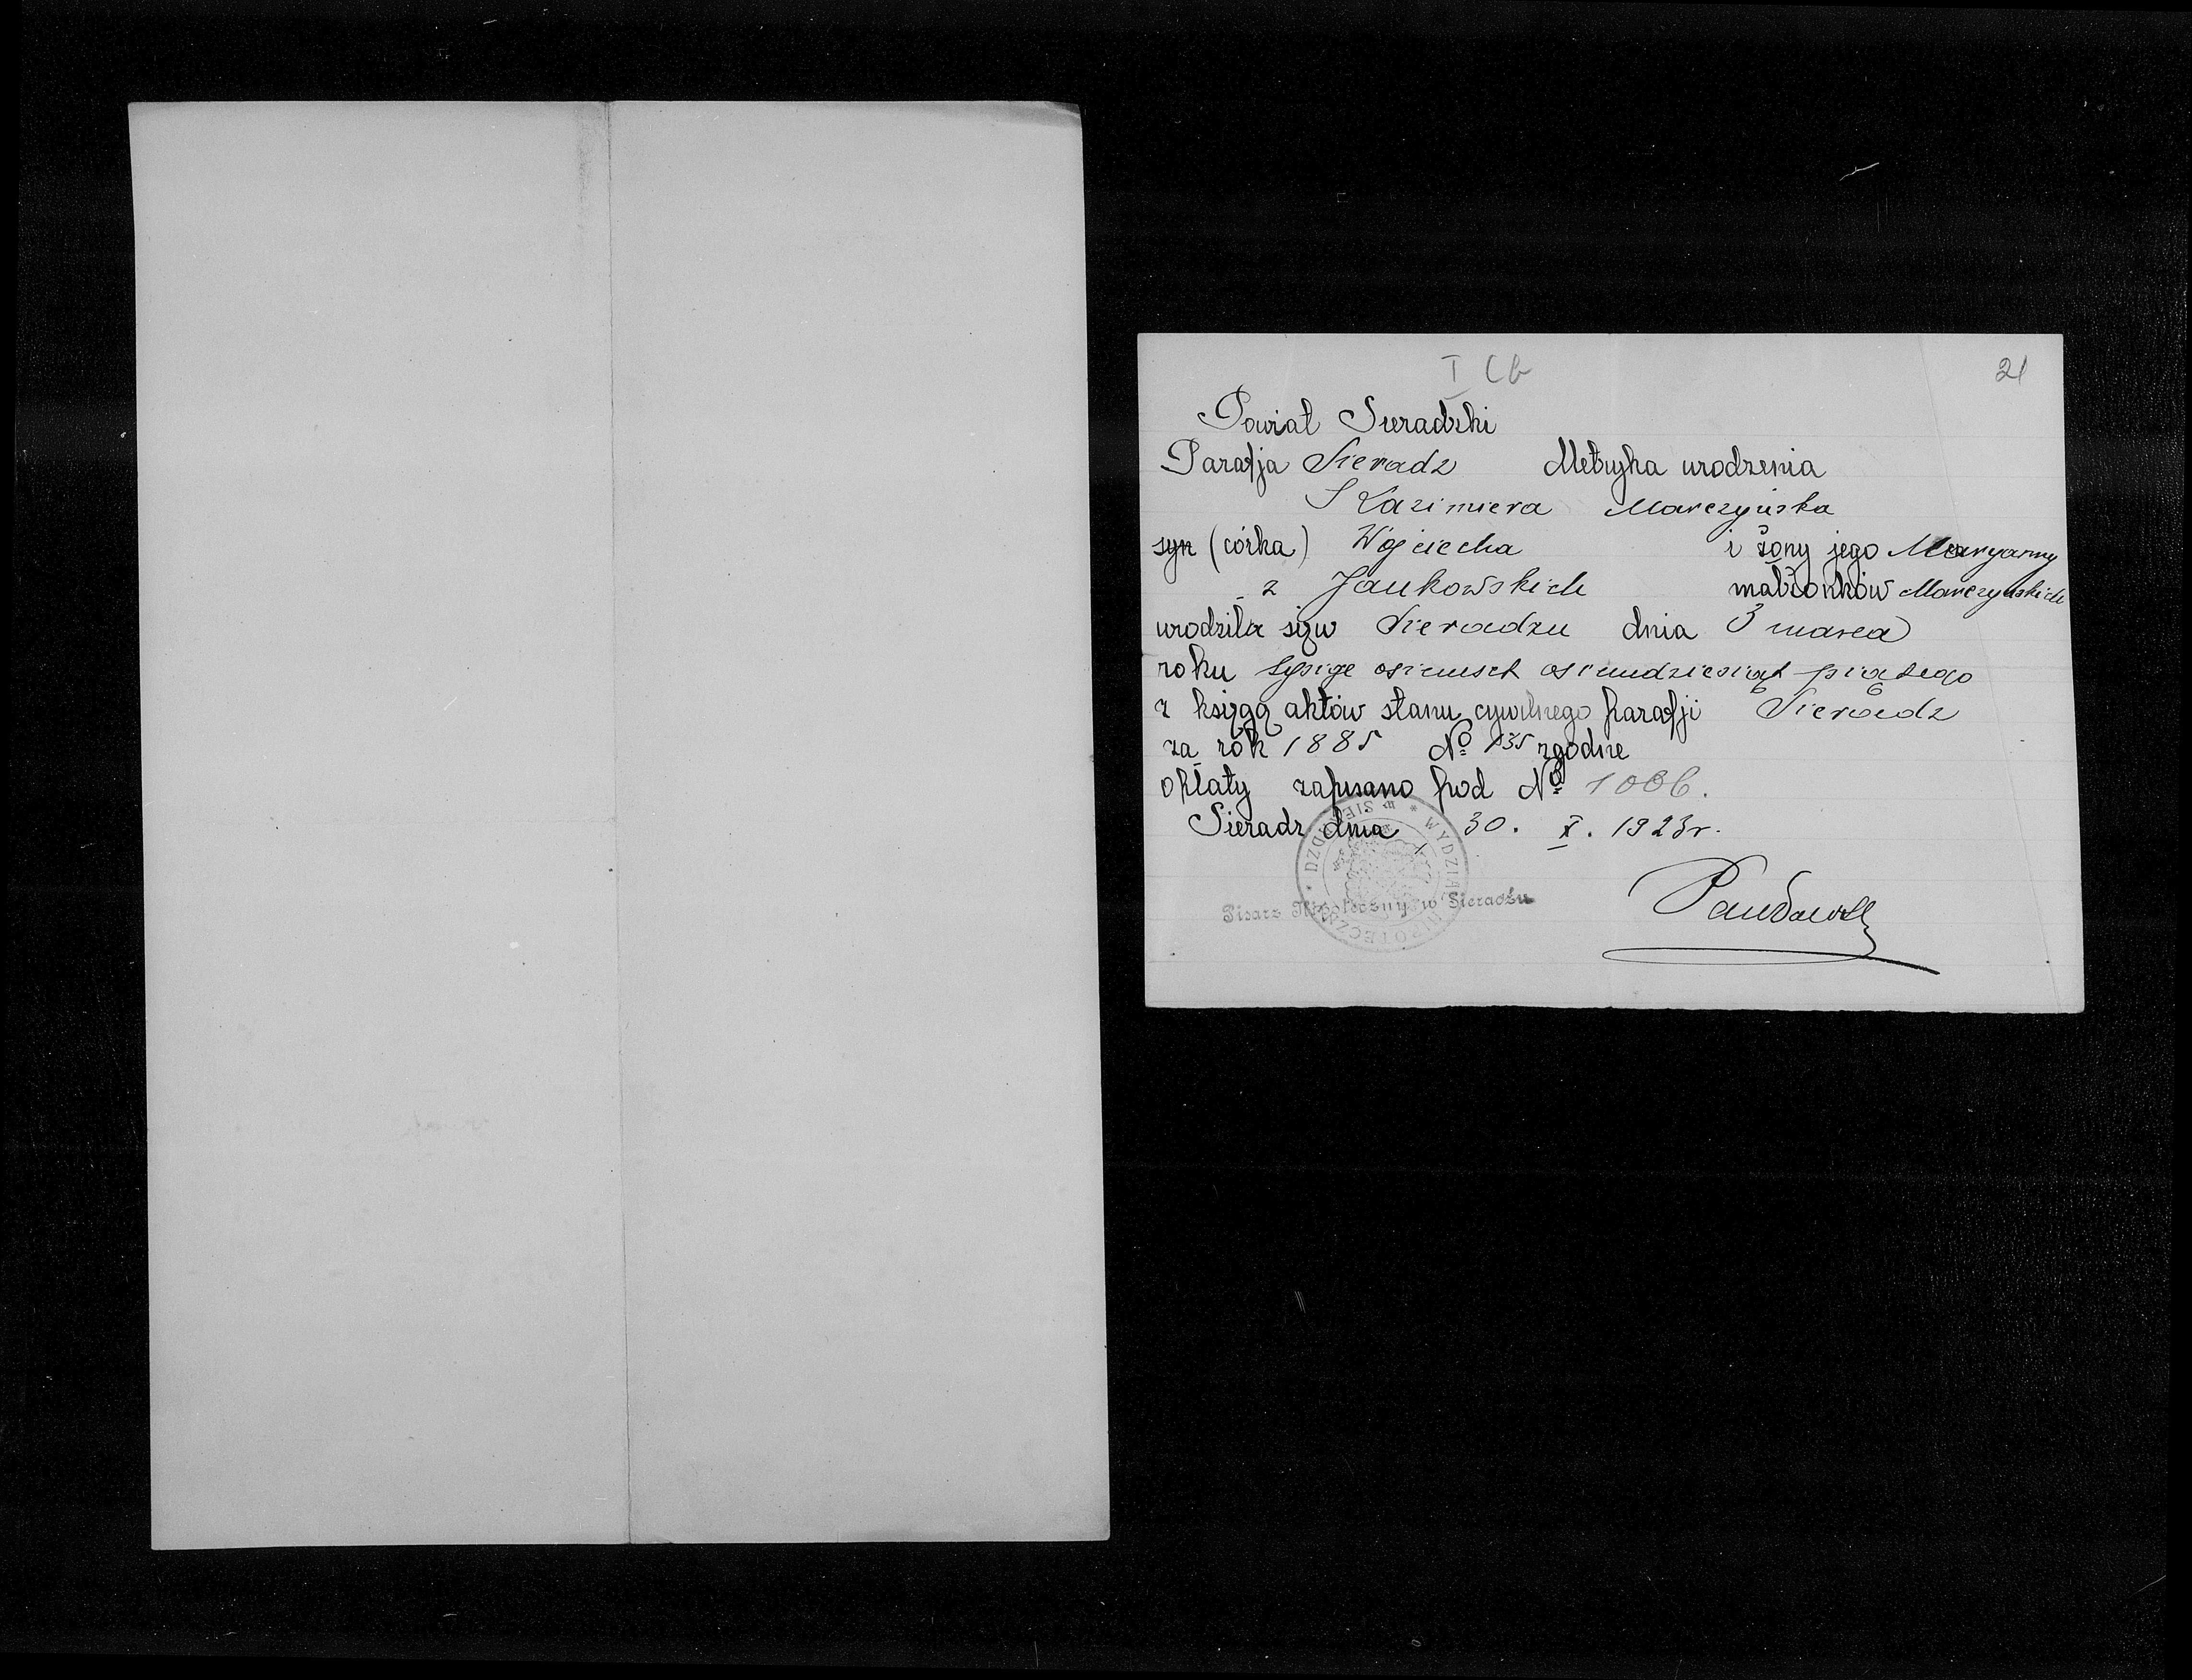 I Cb
21
Powiat Sieradzki
Parafja Sieradz Metryka urodzenia
Kazimiera Marczyńska
syn (córka) Wojciecha i żony jego Maryanny
z Jankowskich małżonków Marczyńskich
urodziła się w Sieradzu dnia 3 marca
roku tysiąc osiemset osiemdziesiąt piątego
z księgą aktów stanu cywilnego parafji Sieradz
za rok 1885 № 135 zgodne
opłaty zapisano pod № 1006.
Sieradz dnia 30. X. 1923 r.
Pisarz Hipoteczny w Sieradzu
* WYDZIAŁ HIPOTECZNY * w SIERADZU